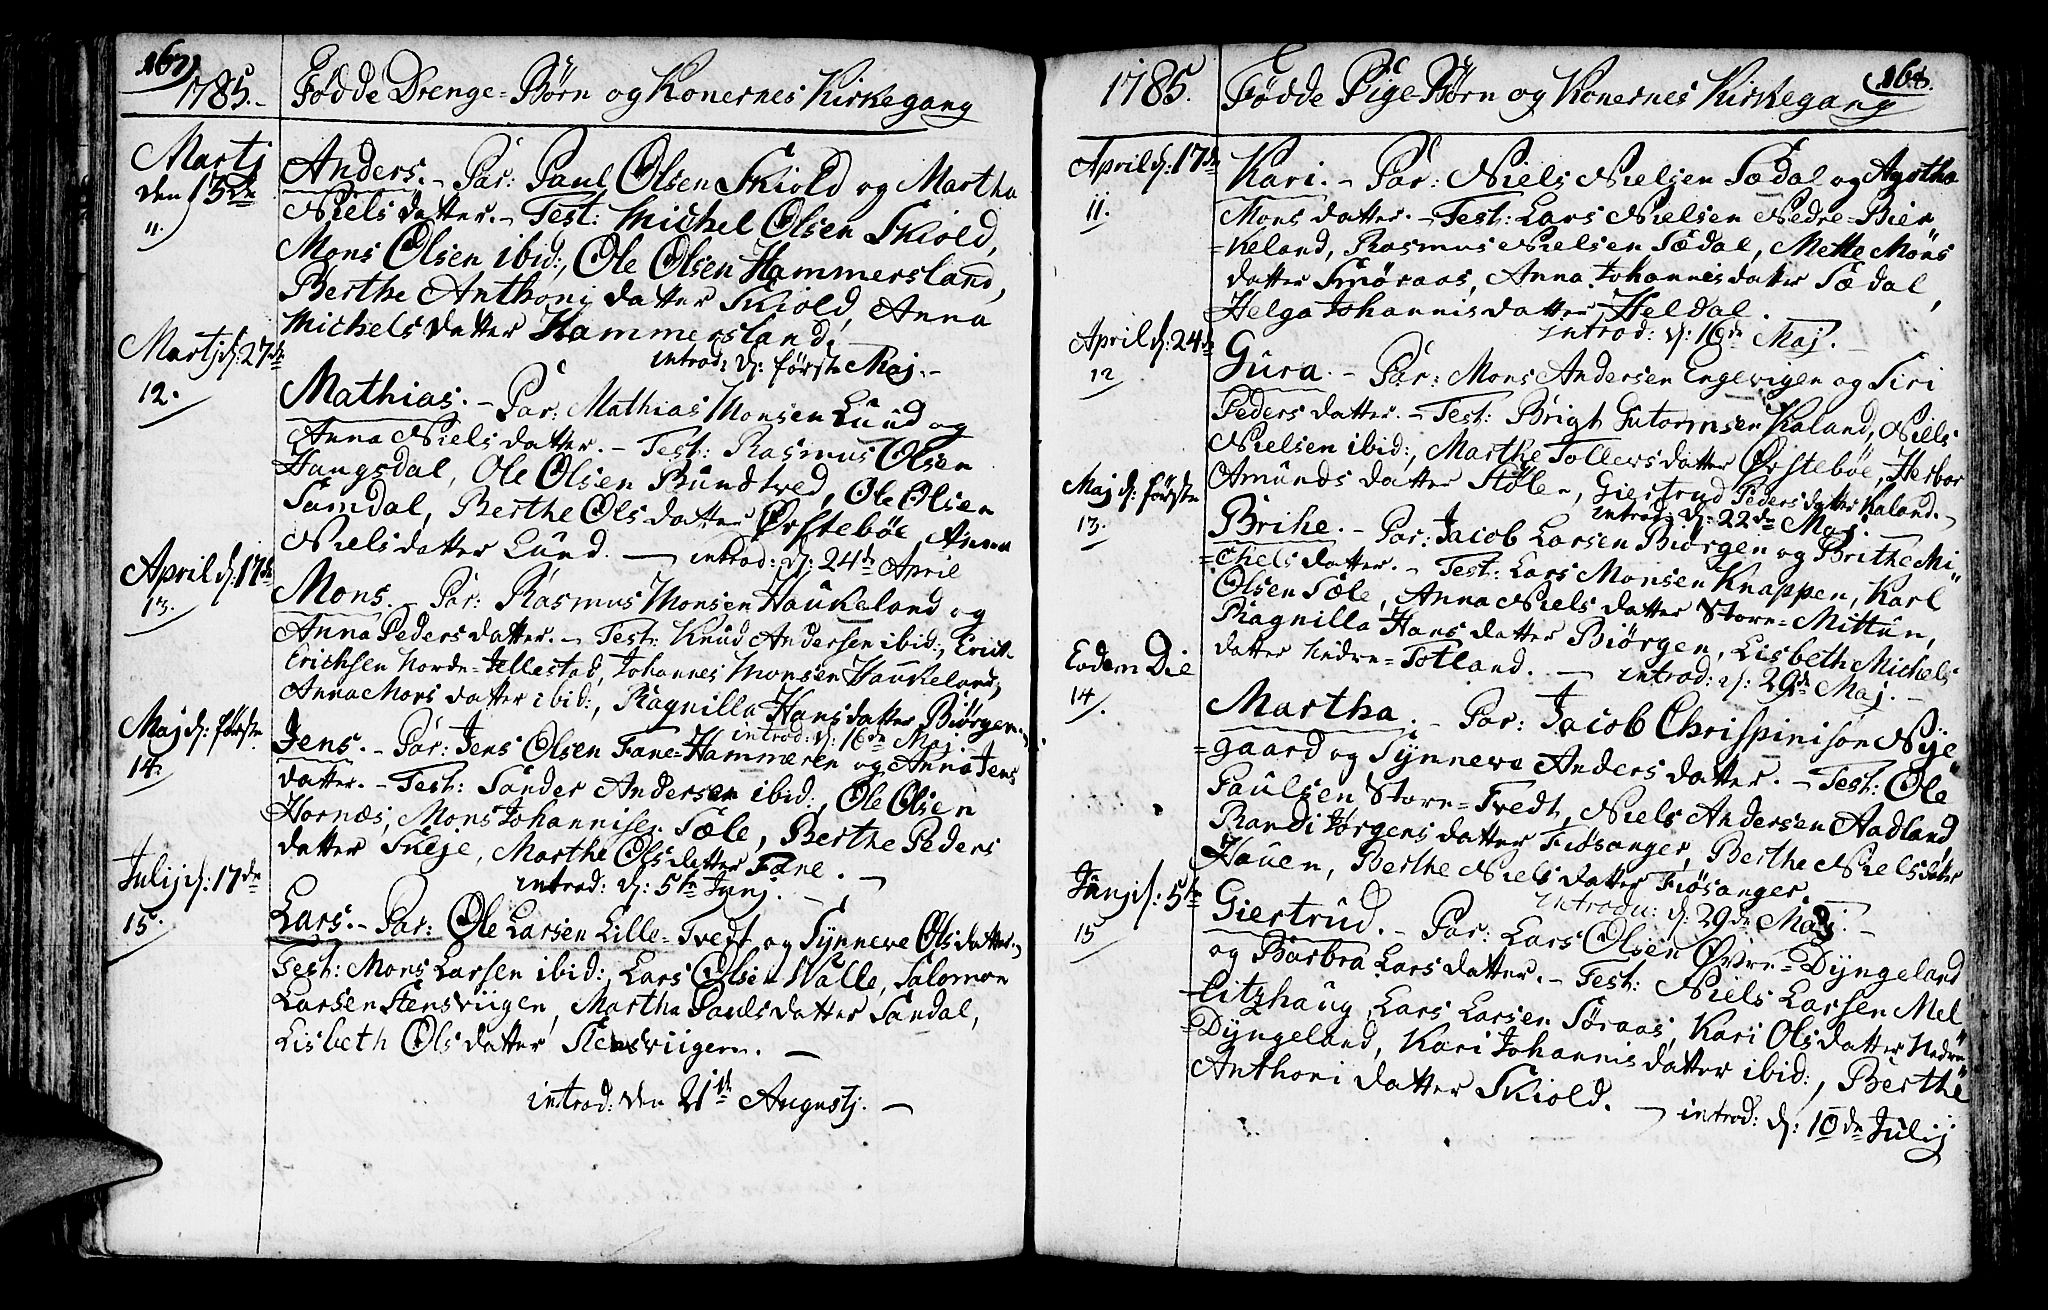 167.
1785.
Fødde Drenge-Børn og Konernes Kirkegang
Martj
den 13de
11.
Anders. - Par: Paul Olsen Skiold og Martha
Niels datter. - Test: Michel Olsen Skiold,
Mons Olsen ibid:, Ole Olsen Hammersland,
Berthe Anthonj datter Skiold, Anna
Michels datter Hammersland.
introd: d: første Maj. -
Martj d: 27de
12.
Mathias. - Par: Mathias Monsen Lund og
Anna Niels datter. - Test: Rasmus Olsen
Haugsdal, Ole Olsen Bundtved, Ole Olsen
Samdal, Berthe Ols datterØrstebøe, Anna
Niels datter Lund. - introd: d: 24de April
April d: 17de
13.
Mons. - Par: Rasmus Monsen Haukeland og
Anna Peders datter. - Test: Knud Andersen ibid:, Erich
Erichsen Nordre-Jllestad, Johannes Monsen Haukeland,
Anna Mons datter ibid:, Ragnilla Hans datter Biørgen.
introd: d: 16de Maj. -
Maj d: første
14.
Jens. - Par: Jens Olsen Fane-Hammeren og Anna Jens
datter. - Test: Sander Andersen ibid:, Ole Olsen
Hornæs, Mons Johannisen Sæle, Berthe Peders
datter Skeje, Marthe Ols datter Fane. -
introd: d: 5te Junj. -
Julij d: 17de
15.
Lars. - Par: Ole Larsen Lille-Tvedt og Synneve Ols datter.
Test: Mons Larsen ibid:, Lars Olsen Walle, Salomon
Larsen Stensviigen, Martha Pauls datter Sandal,
Lisbeth Ols datter Stensviigen. -
introd: den 21de Augustj. -
168.
1785.
Fødde Pige-Børn og Konernes Kirkegang
April d: 17de
11.
Kari. - Par: Niels Nielsen Sædal og Agatha
Mons datter. - Test: Lars Nielsen Nedre-Bir
=keland, Rasmus Nielsen Sædal, Mette Mons
datter Smøraas, Anna Johannis datter Sædal,
Helga Johannis datter Heldal.
introd: d: 16de Maj. -
April d: 24de
12
Gura. - Par: Mons Andersen Engevigen og Siri
Peders datter. - Test: Brigt Gutormsen Kaland, Niels
Nielsen ibid:, Marthe Tollevs datter Ørstebøe, Herbor
Amunds datter Stølen, Giertrud Peders datter Kaland. -
introd: d: 22de Maj. -
Maj d: første
13.
Brihe. - Par: Jacob Larsen Biørgen og Brithe Mi
=chels datter. - Test: Lars Monsen Knappen, Karl
Olsen Sæle, Anna Niels datter Store-Mittun,
Ragnilla Hans datter Biørgen, Lisbeth Michels
datter Nedre-Totland. - introd: d: 29de Maj. -
Eodem Die
14.
Martha. - Par: Jacob Chrispinisøn Nye
=gaard og Synneve Anders datter. - Test: Ole
Paulsen Store-Tvedt, Niels Andersen Aadland,
Randi Jørgens datter Fiøsanger, Berthe Niels datter
Hauen, Berthe Niels datter Fiøsanger.
introdu: d: 29de Maj. -
Junj d: 5te
15
Giertrud. - Par: Lars Olsen Øvre-Dyngeland
og Barbra Lars datter. - Test: Niels Larsen Mel
=litzhaug, Lars Larsen Søraas, Kari Ols datter Nedre
=Dyngeland, Kari Johannis datter ibid:, Berthe
Anthoni datter Skiold. - introd: d: 10de Julij